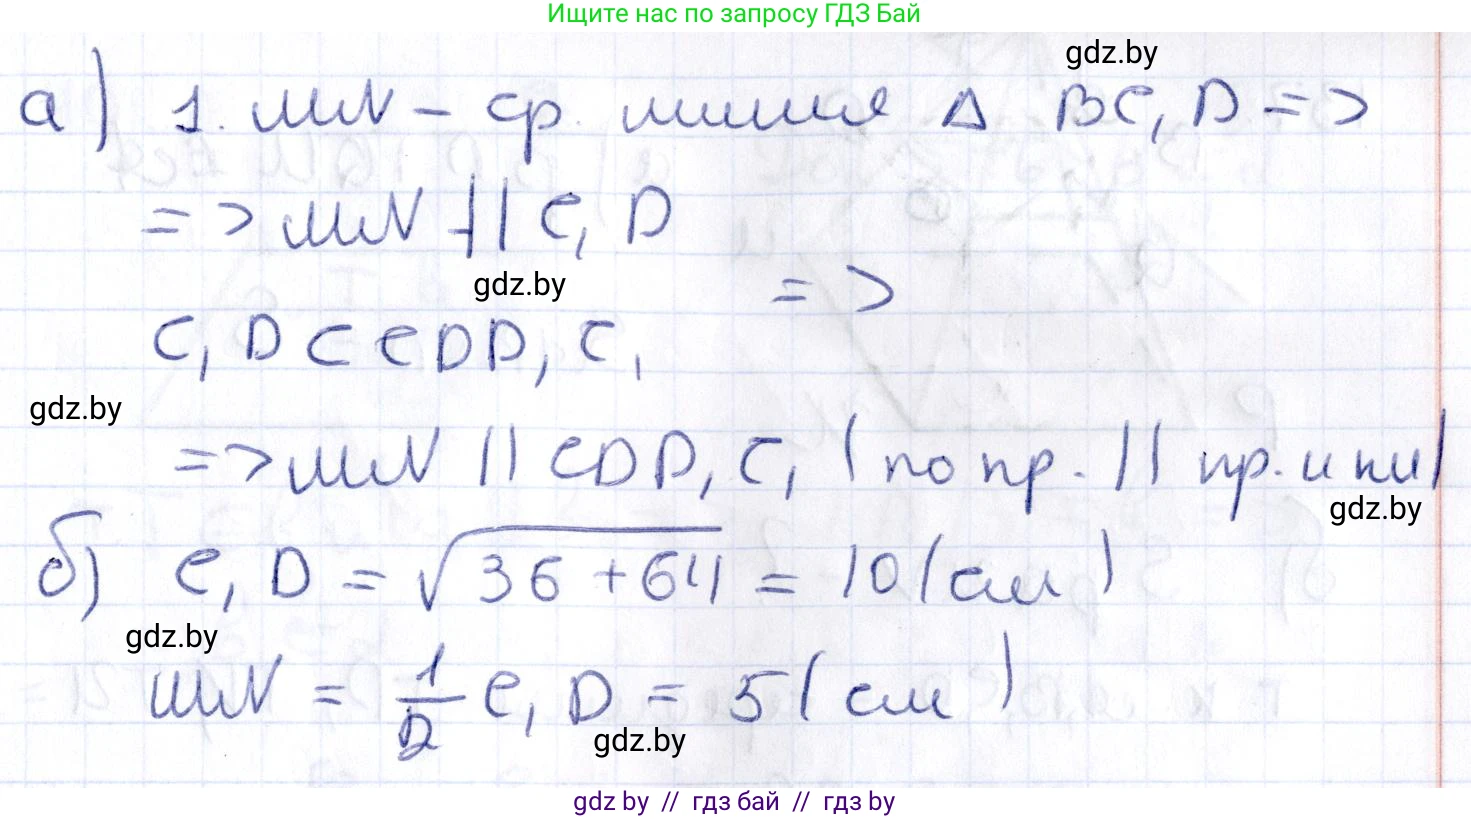 Ищите нас по запросу ГДЗ Бай
gdz.by
а) 1. MN – ср. линия Δ BC₁D =>
=> MN || C₁D
gdz.by
=>
C₁D ⊂ CDD₁C₁
gdz.by
=> MN || CDD₁C₁ (по пр. || пр. и пл)
gdz.by
б) C₁D = √36 + 64 = 10 (см)
gdz.by
MN = 1/2 C₁D = 5 (см)
gdz.by
gdz by // гдз бай // гдз by